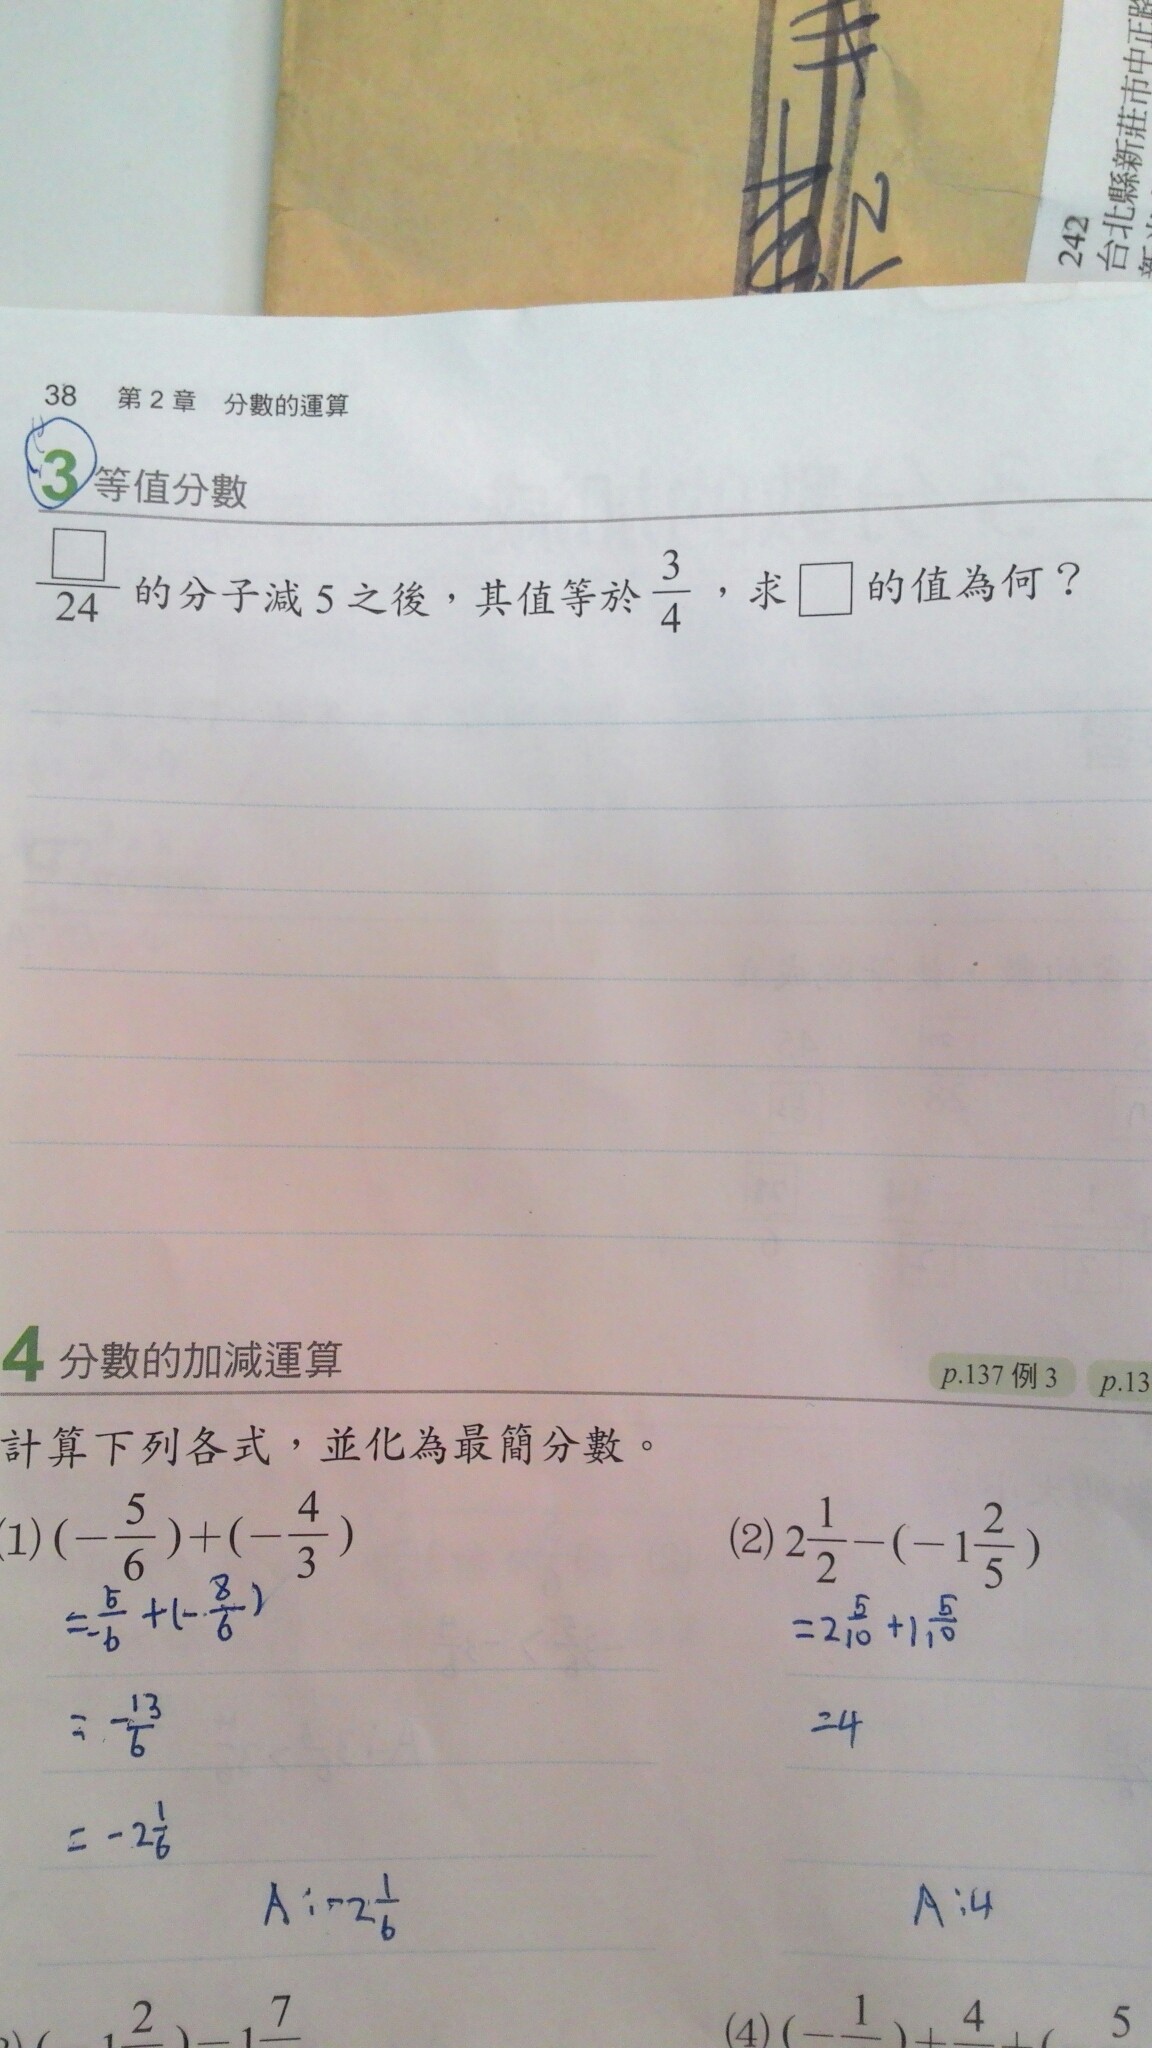 242
台北縣新莊市中正路
38 第2章 分數的運算
3 等值分數
□/24 的分子減5之後，其值等於 3/4 ，求 □ 的值為何？
4 分數的加減運算 p.137 例3 p.13
計算下列各式，並化為最簡分數。
(1) (-5/6)+(-4/3)
= -5/6 +(-8/6)
= -13/6
= -2 1/6
A:-2 1/6
(2) 2 1/2-(-1 2/5)
=2 5/10 +1 5/10
=4
A:4
1 2/ )-1 7/
(4) (-1/ )+4/ +( 5/